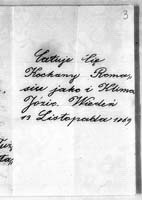 3
Całuje Cię
Kochany Roma,
siu jako i Klima
Józic. Wiedeń
13 Listopakla 1869